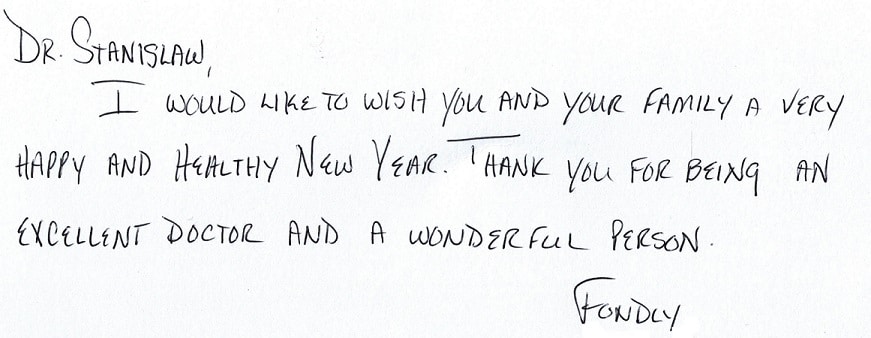 Dr. Stanislaw,
I would like to wish you and your family a very
happy and healthy New Year. Thank you for being an
excellent doctor and a wonderful person.
Fondly